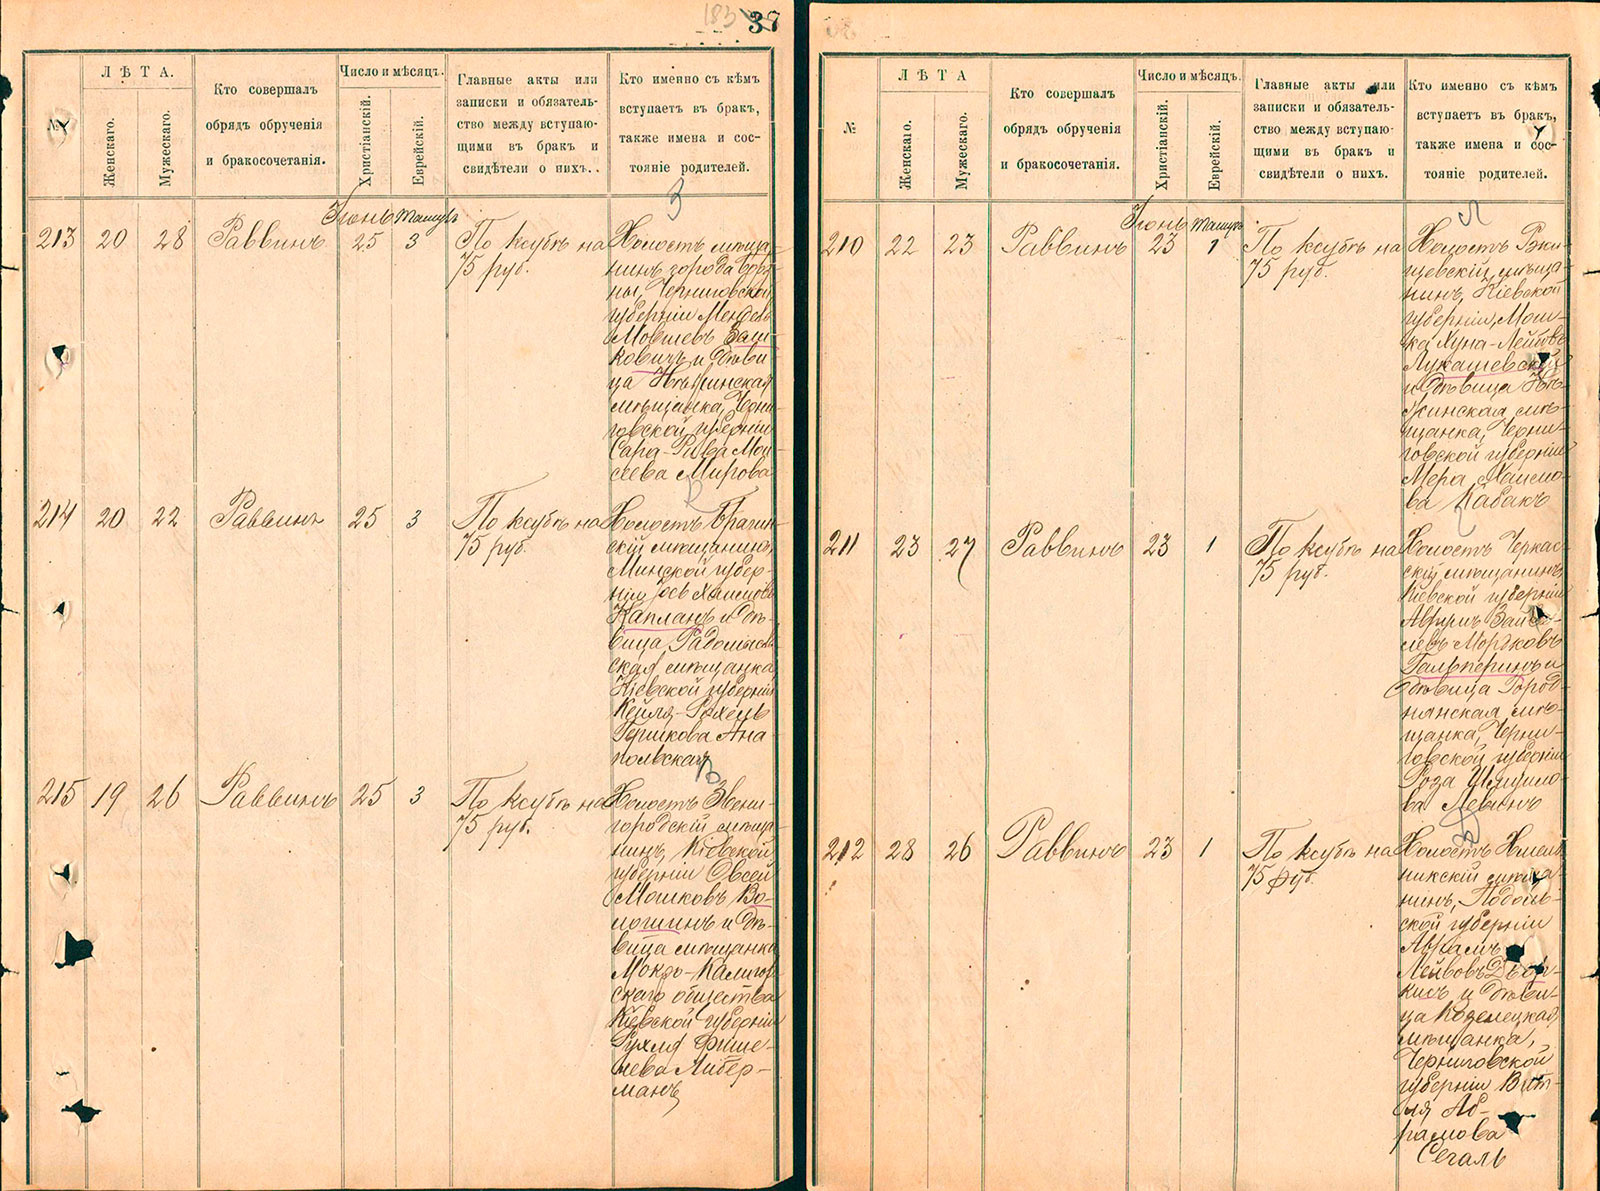 183
37
№
ЛѢТА.
Женскаго.
Мужескаго.
Кто совершалъ
обрядъ обрученія
и бракосочетанія.
Число и мѣсяцъ.
Христіанскій.
Еврейскій.
Главные акты или
записки и обязатель-
ство между вступаю-
щими въ бракъ и
свидѣтели о нихъ.
Кто именно съ кѣмъ
вступаетъ въ бракъ,
также имена и сос-
тояніе родителей.
З
Іюнь Тамузъ
213 20 28 Раввинъ 25 3
По ксубѣ на
75 руб.
Холостъ мѣща-
нинъ города
ны, Черниговской
губерніи Мендель
Мовшевъ Заш-
ковичъ и дѣви-
ца Нѣжинская
мѣщанка, Черни-
говской губерніи
Сара-Рива Мов-
сеева Мирова
К
214 20 22 Раввинъ 25 3
По ксубѣ на
75 руб.
Холостъ Брагин-
скій мѣщанинъ,
Минской губер-
ніи Іось Хаимовъ
Капланъ и дѣ-
вица Радомысль-
ская мѣщанка,
Кіевской губерніи
Кейля-Рохель
Гершкова Ана-
польская
В
215 19 26 Раввинъ 25 3
По ксубѣ на
75 руб.
Холостъ Звени-
городскій мѣща-
нинъ, Кіевской
губерніи Овсей
Мошковъ Во-
лошинъ и дѣ-
вица мѣщанка
Мокро-Калигор-
скаго общества
Кіевской губерніи
Рухля Фише-
лева Либер-
манъ
№
ЛѢТА
Женскаго.
Мужескаго.
Кто совершалъ
обрядъ обрученія
и бракосочетанія.
Число и мѣсяцъ.
Христіанскій.
Еврейскій.
Главные акты или
записки и обязатель-
ство между вступаю-
щими въ бракъ и
свидѣтели о нихъ.
Кто именно съ кѣмъ
вступаетъ въ бракъ,
также имена и сос-
тояніе родителей.
Л
Іюнь Тамузъ
210 22 23 Раввинъ 23 1
По ксубѣ на
75 руб.
Холостъ Ржи-
щевскій мѣща-
нинъ, Кіевской
губерніи, Мош-
ка Хуна-Лейбовъ
Лукашевскій
и дѣвица Нѣ-
жинская мѣ-
щанка, Черни-
говской губерніи
Мера Хаимо-
ва Кабакъ
211 23 27 Раввинъ 23 1
По ксубѣ на
75 руб.
Холостъ Черкас-
скій мѣщанинъ,
Кіевской губерніи
Аврумъ Зайве-
левъ Мордковъ
Гальперинъ и
дѣвица Город-
нянская мѣ-
щанка, Черни-
говской губерніи
Роза Шмуило-
ва Левинъ
212 28 26 Раввинъ 23 1
По ксубѣ на
75 руб.
Холостъ Хмель-
никскій мѣща-
нинъ, Подоль-
ской губерніи
Аврамъ
Лейбовъ Двор-
кисъ и дѣви-
ца Козелецкая
мѣщанка,
Черниговской
губерніи Вит-
ля Аб-
рамова
Сегаль